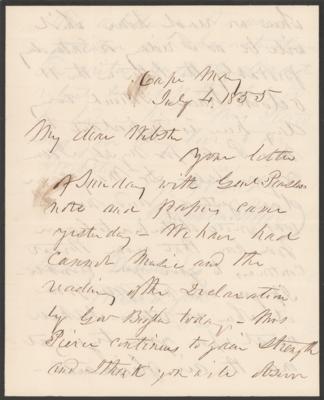 Cape May
July 4. 1855
My dear Webster
Your letter
of Sunday with Genl
note and papers came
yesterday - We have had
cannon Music and the
reading of the Declaration
by Gov today - Mrs
Pierce continues to gain strength
and I think you will observe